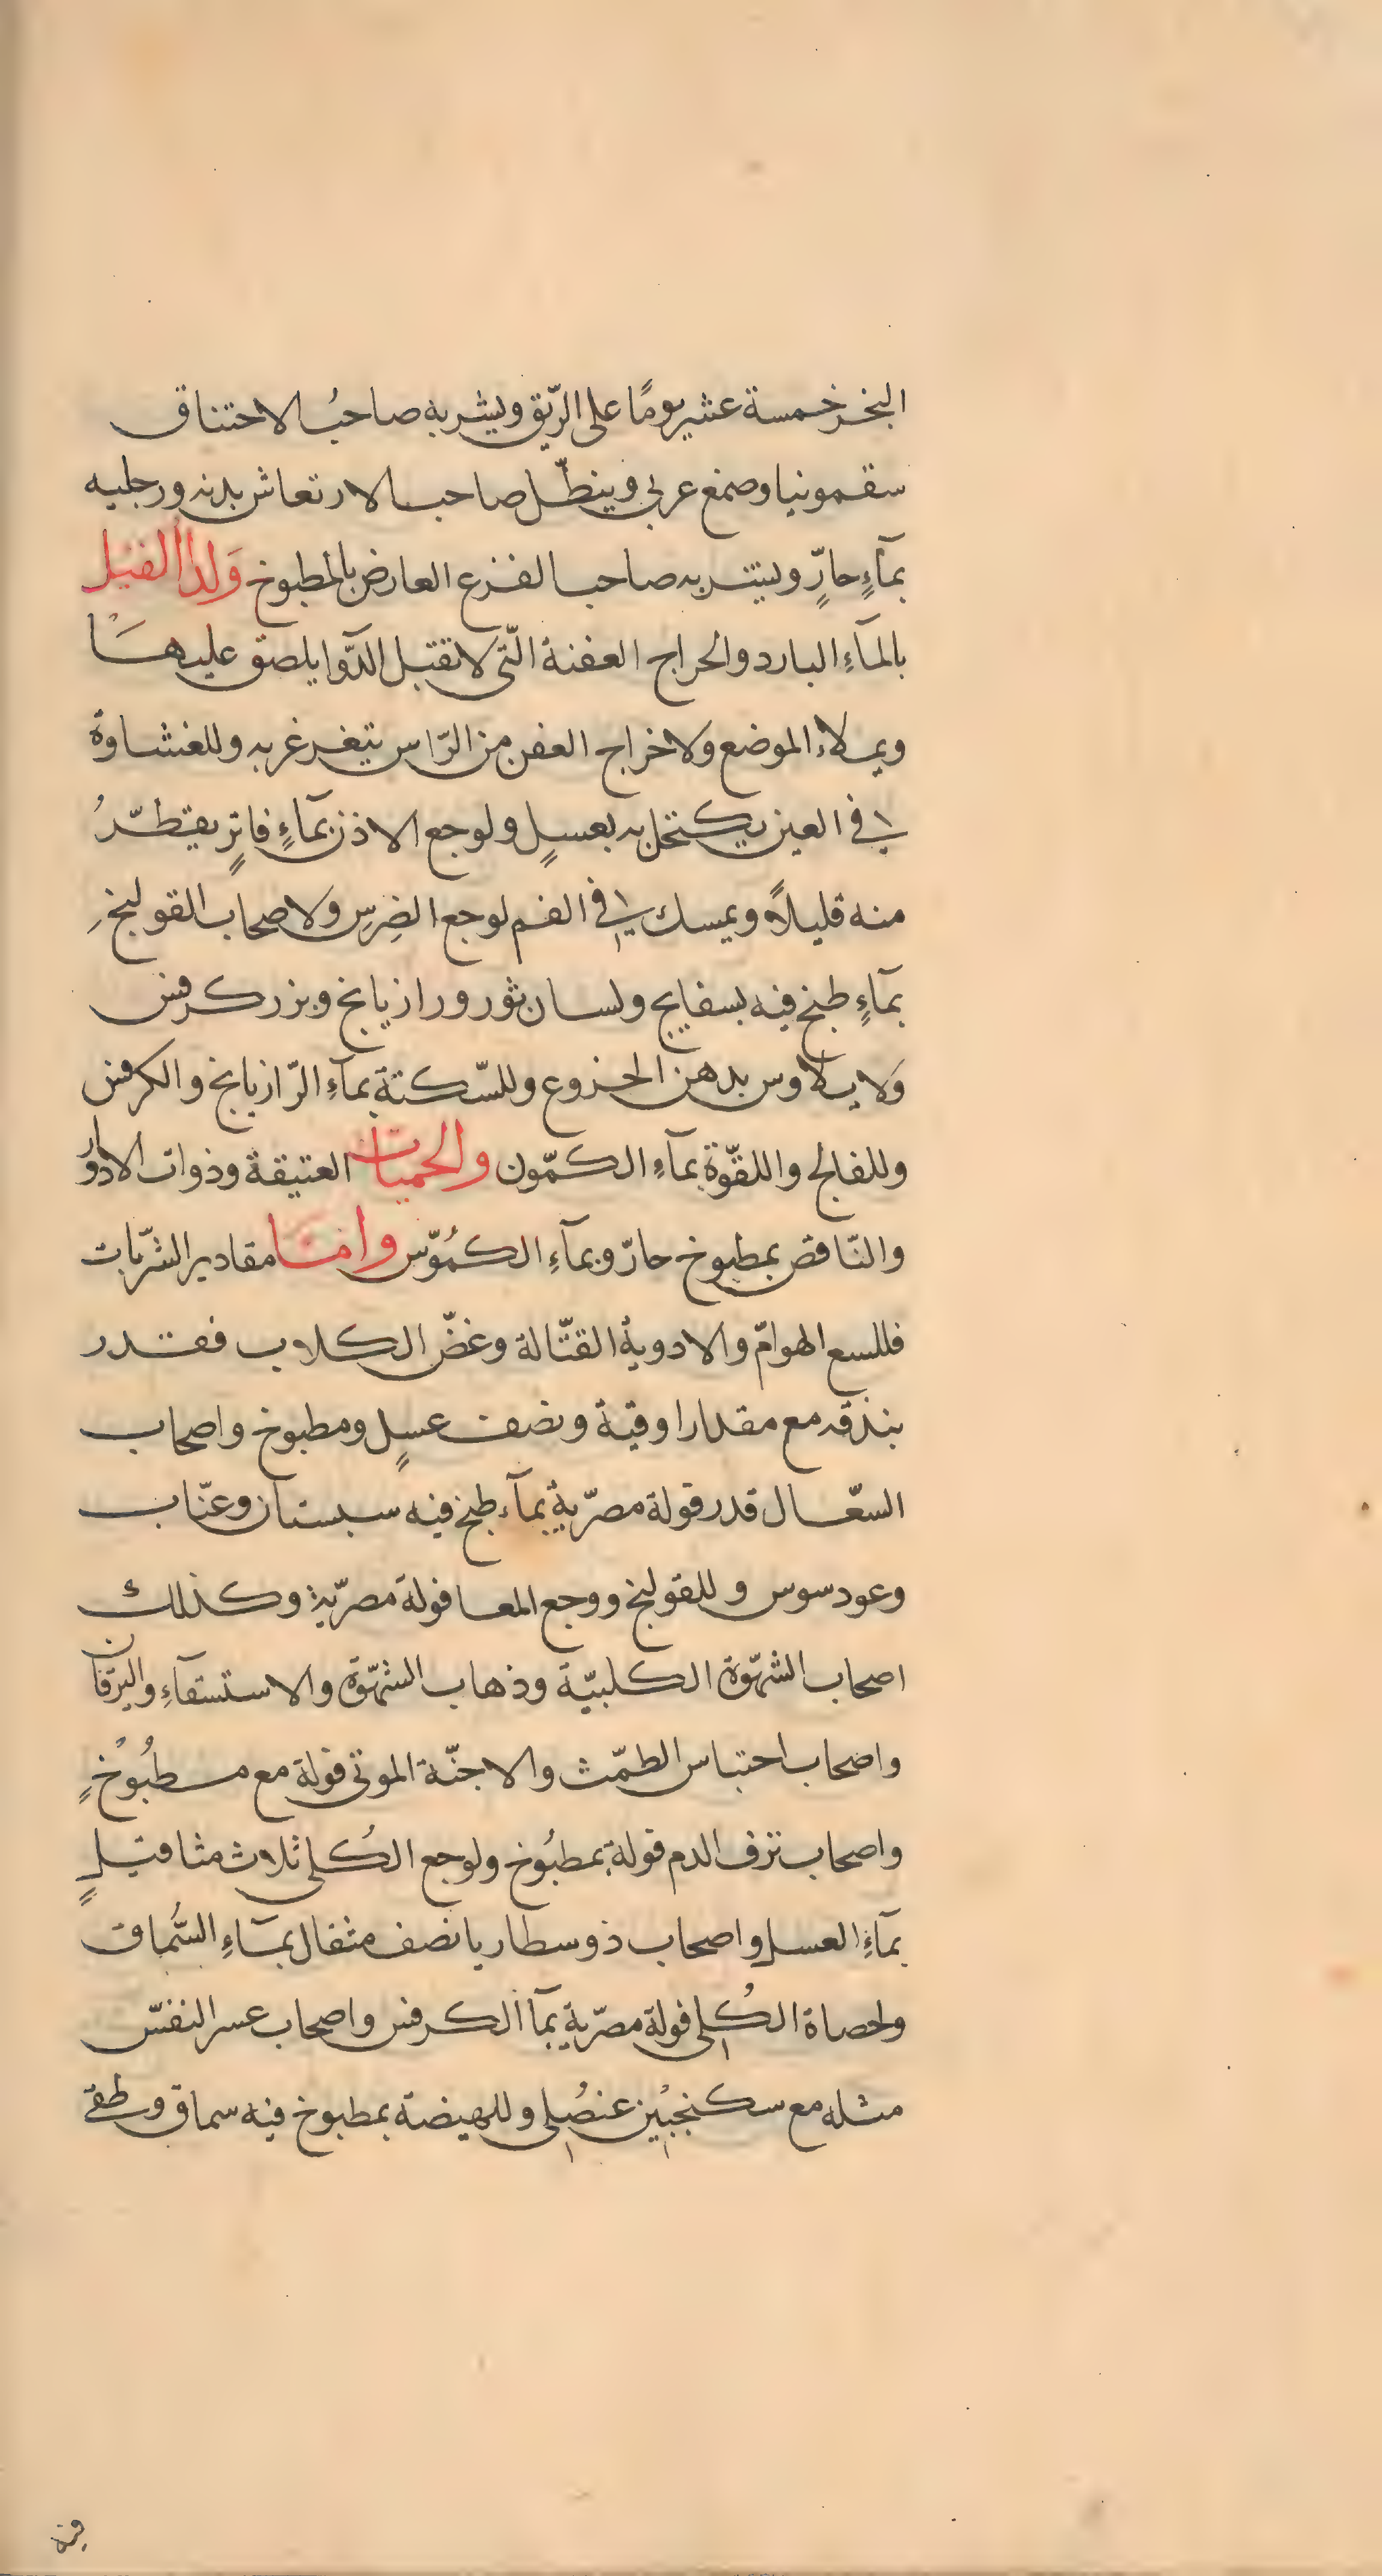 البخر خمسة عشر يومًا على الرّيق ويشربه صاحبُ الاختناق
سقمونيا وصمغ عربي وينطّل صاحب الارتعاش بدنه ورجليه
بمآءٍ حارٍّ ويشربه صاحب الفزع العارض بالمطبوخ ولدآ الفيل
بالمآءِ البارد والجراح العفنة الّتى لا تقبل الدّوا يلصق عليها
ويملاء الموضع ولاخراج العفن من الرّاس يتغرغر به وللغشاوة
في العين يكتحل به بعسلٍ ولوجع الاذن بمآءٍ فاترٍ يقطّرُ
منه قليلاً ويمسك في الفم لوجع الضِرسِ ولاصحاب القولنج
بمآءٍ طبخ فيه بسفايج ولسان ثور ورازيانج وبزر كرفس
ولايلاوس بدهن الخروع وللسّكتة بمآءِ الرّازيانج والكرفس
وللفالج واللقّوة بمآءِ الكمّون والحميات العتيقة وذوات الادوار
والنّافض بمطبوخ حارّ وبمآءِ الكمُوّن وامّا مقادير الشّربات
فللسع الهوامّ والادوية القتّالة وعضّ الكلاب فقدر
بندقه مع مقدار اوقية ونصف عسلٍ ومطبوخ واصحاب
السعّال قدر فولة مصرّية بمآء طبخ فيه سبستان وعنّاب
وعود سوس وللقولنج ووجع المعا فولة مصرّية وكذلك
اصحاب الشهّوة الكلبيّة وذهاب الشهّوة والاستسقآءِ واليرقان
واصحاب احتباس الطمّث والاجنّة الموتى فولة مع مطبُوْخٍ
واصحاب نزف الدم فولة بمطبُوخ ولوجع الكُلى ثلاث مثاقيلٍ
بمآءِ العسل واصحاب ذوسطاريا نصف مثقال بمآءِ السُّماق
ولحصاة الكُلى فولة مصرّية بمآ الكرفس واصحاب عسر النفسّ
مثله مع سكنجبُين عنصُلى وللهيضة بمطبوخ فيه سماق وسقى